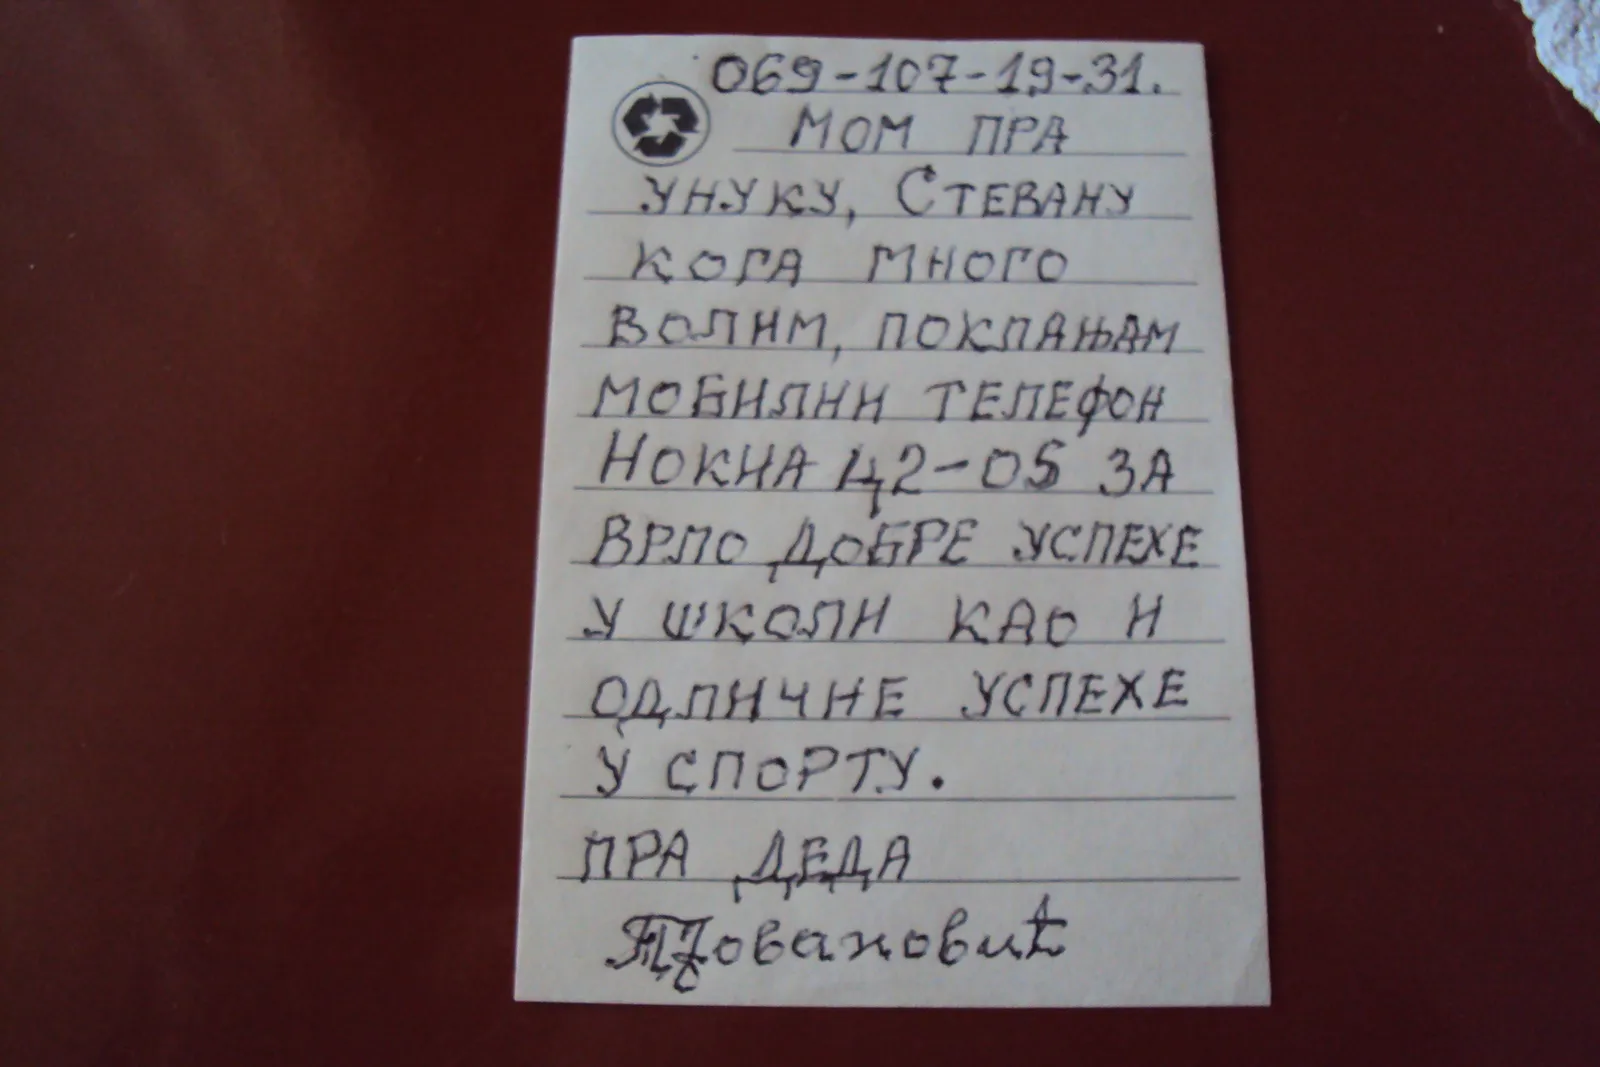 069-107-19-31.
МОМ ПРА
УНУКУ, СТЕВАНУ
КОГА МНОГО
ВОЛИМ, ПОКЛАЊАМ
МОБИЛНИ ТЕЛЕФОН
НОКИА Ц2-05 ЗА
ВРЛО ДОБРЕ УСПЕХЕ
У ШКОЛИ КАО И
ОДЛИЧНЕ УСПЕХЕ
У СПОРТУ.
ПРА ДЕДА
Јовановић